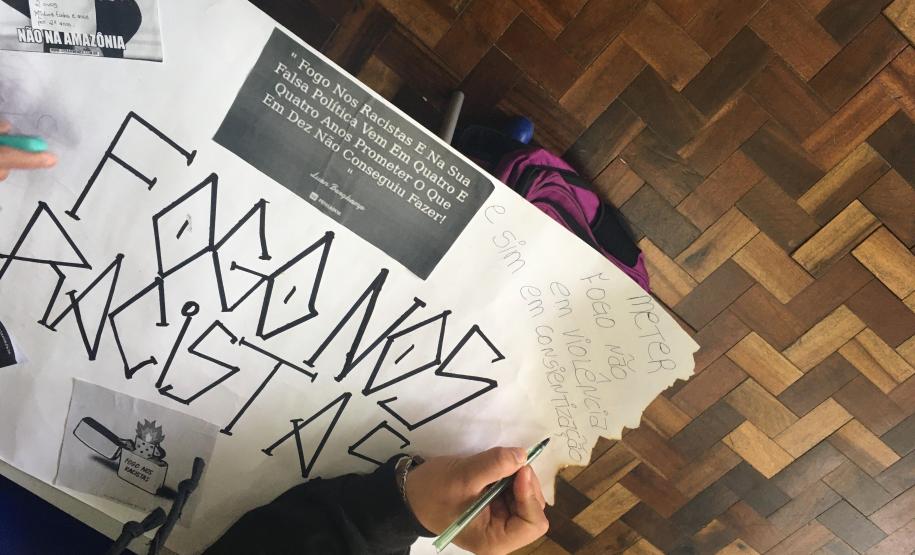 NÃO NA AMAZÔNIA
" Fogo Nos Racistas E Na Sua
Falsa Política Vem Em Quatro E
Quatro Anos Prometer O Que
Em Dez Não Conseguiu Fazer!
"
FOGO NOS
RACISTAS
METER
FOGO NÃO
em VIOLÊNCIA
e SIM em CONSIENTIZAÇÃO
FOGO NOS
RACISTAS